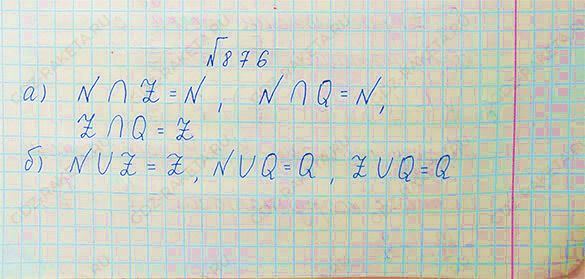 №876
а) N ∩ Z = N, N ∩ Q = N,
Z ∩ Q = Z
б) N ∪ Z = Z, N ∪ Q = Q, Z ∪ Q = Q
GDZ-RAKETA.RU